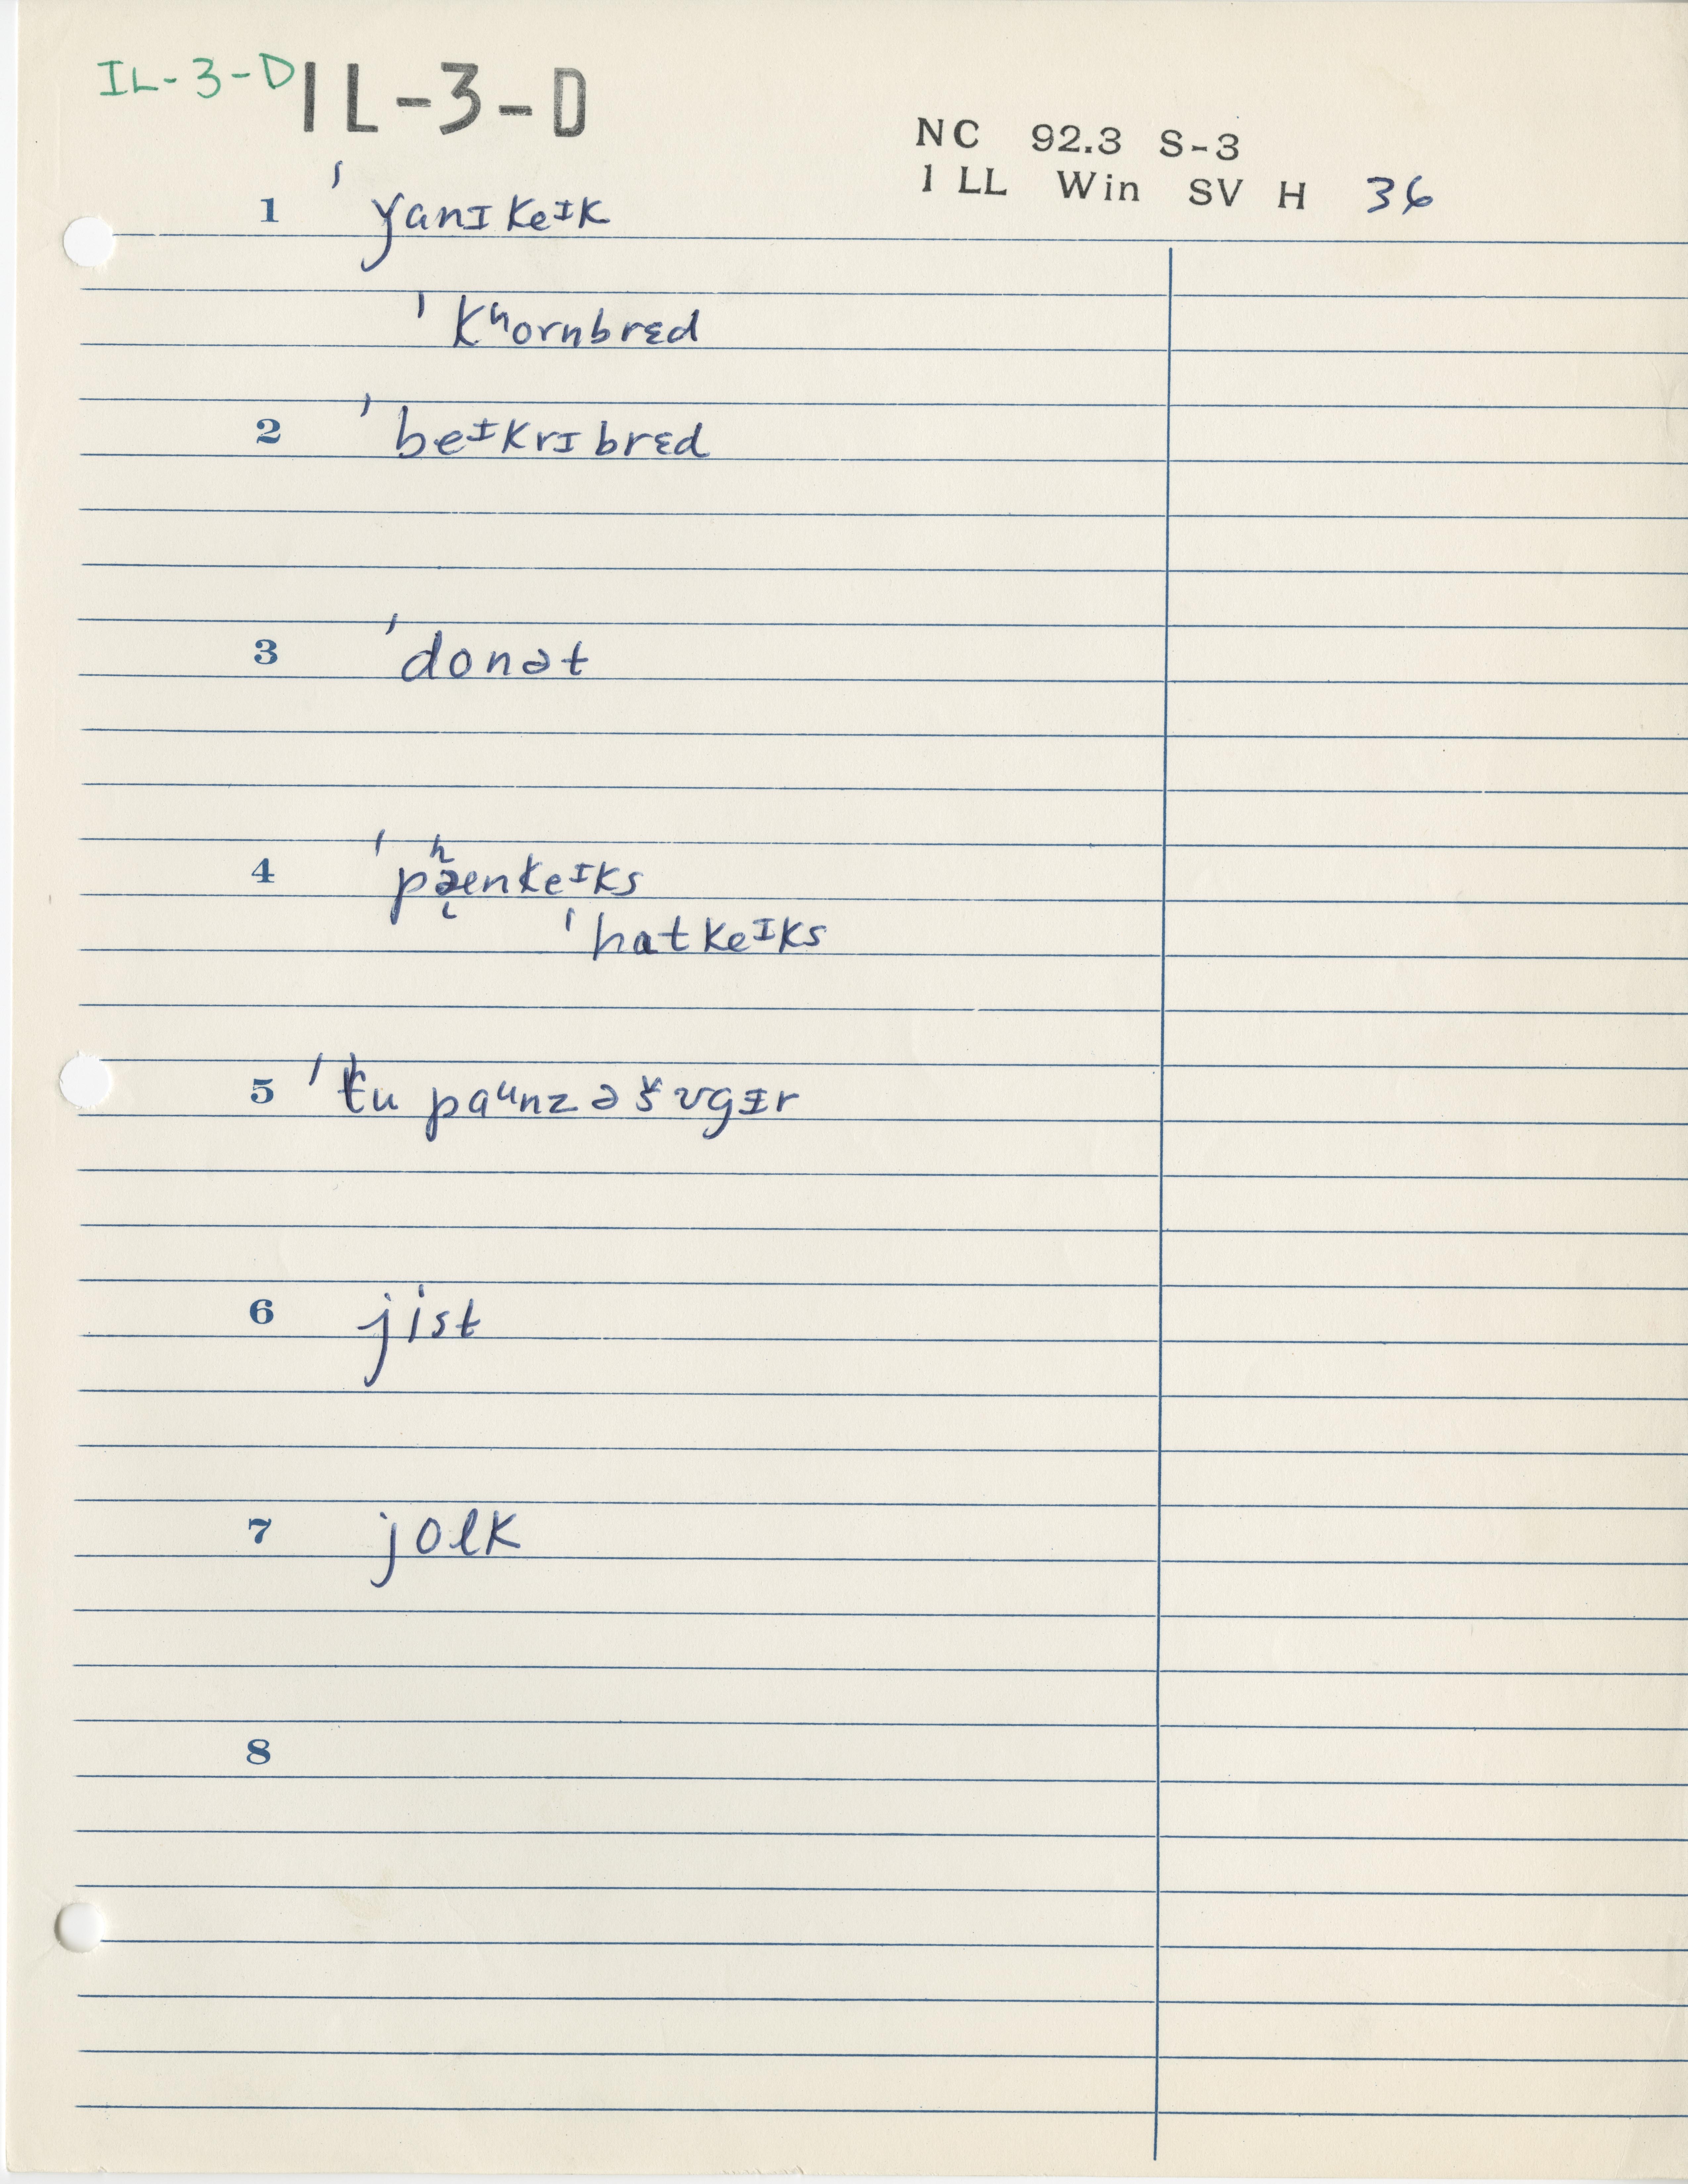 IL-3-D IL-3-D
NC 92.3 S-3
1 LL Win SV H 36
1 ˈyanɪkeᶦk
ˈkʰornbrɛd
2 ˈbeᶦkrɪbrɛd
3 ˈdonət
4 ˈpʰæ̨nkeᶦks
ˈhatkeᶦks
5 ˈtʰu paᵘnz ə šʊgɪr
6 jist
7 jolk
8